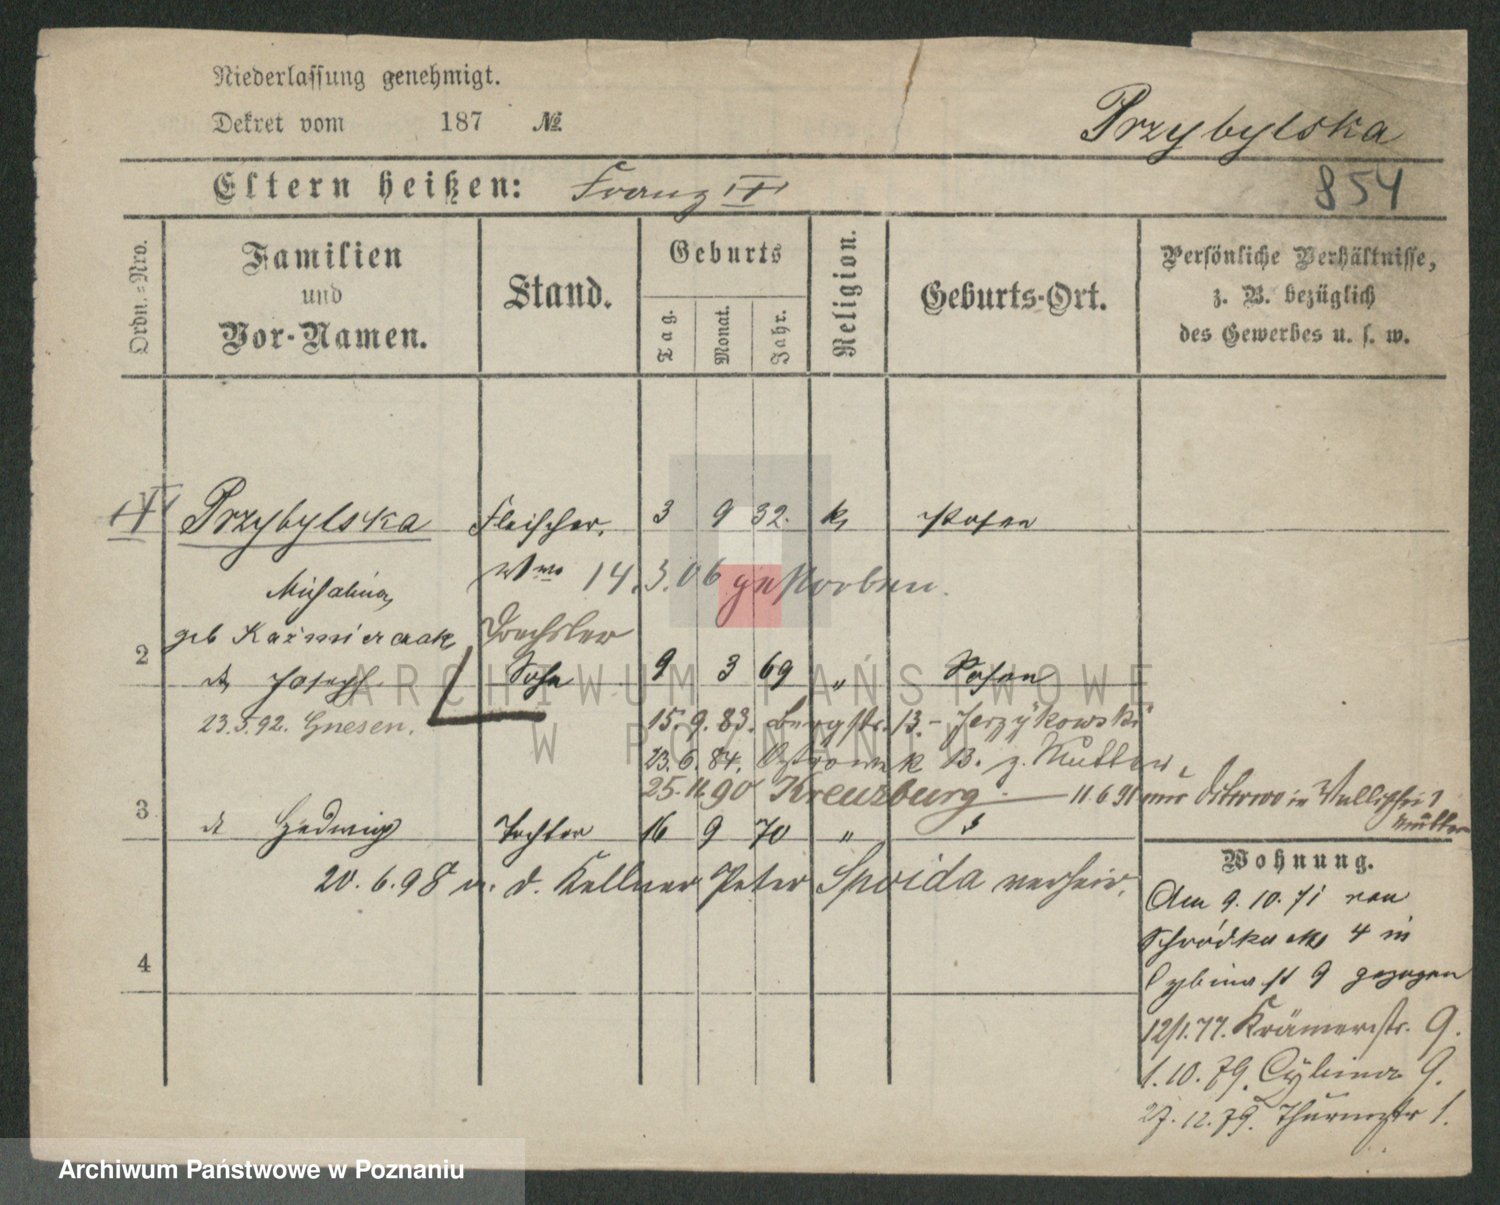 Niederlassung genehmigt.
Dekret vom 187 №
Przybylska
Eltern heißen: Franz
854
Ordn.=Nro.
Familien
und
Vor-Namen.
Stand.
Geburts
Tag.
Monat.
Jahr.
Religion.
Geburts-Ort.
Persönliche Verhältnisse,
z. B. bezüglich
des Gewerbes u. s. w.
Przybylska Fleischer. 3 9 32. k. Posen
Michalina, Wwe 14.3.06 gestorben.
geb Kaźmierczak Drechsler
2 Joseph Sohn 9 3 69 " Posen
23.5.92. Gnesen. 15.9.83. Bergstr. 13. - Jerzykowski
23.6.84. Ostrowek 13. z. Mutter,
25.11.90 Kreuzburg — 11.6.91 Mutter
3 Hedwig Tochter 16 9 70 "
20.6.98 m. d. Kellner Peter Spoida verheir.
4
Wohnung.
Am 9.10.71 von
Schrodka No 4 in
Cybina st 9 gezogen
12/1.77. Krämerstr. 9.
1.10.79. Cybina 9.
27.12.79. Thurmstr 1.
ARCHIWUM PAŃSTWOWE
W POZNANIU
Archiwum Państwowe w Poznaniu